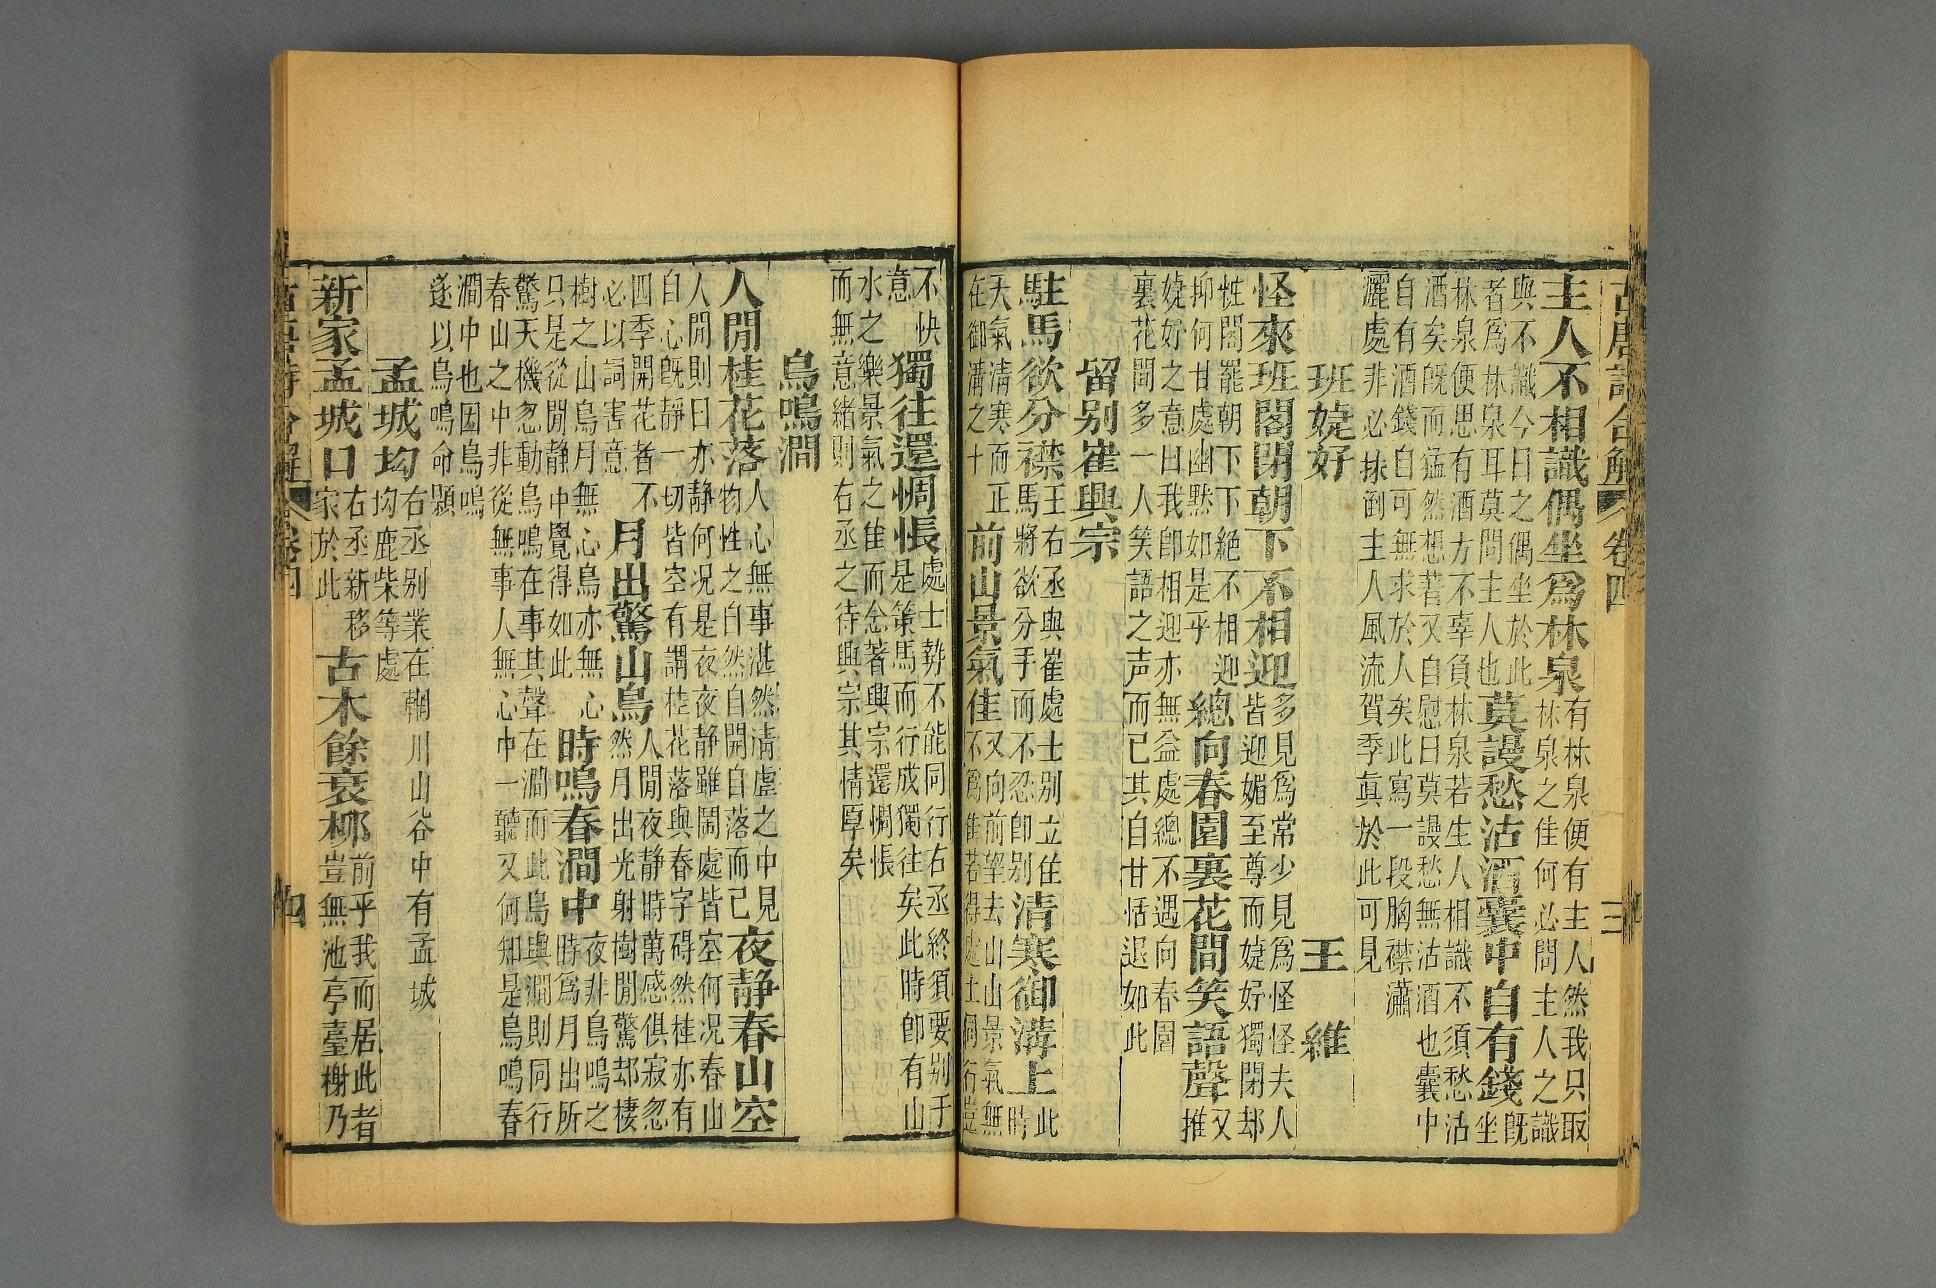 古唐詩合解 卷四 三
主人不相識偶坐爲林泉
有林泉便有主人然我只取
林泉之佳何必問主人之識
與不識今日之偶坐於此
者爲林泉耳莫問主人也
莫謾愁沽酒囊中自有錢
既
坐
林泉便思有酒方不辜負林泉若生人相識不須愁沽
酒矣既而猛然想著又自慰曰莫謾愁無沽酒也囊中
自有酒錢自可無求於人矣此寫一段胸襟瀟
灑處非必抹倒主人風流賀季眞於此可見
班婕妤 王維
怪來班閣閉朝下不相迎
多見爲常少見爲怪怪夫人
皆迎媚至尊而婕妤獨閉却
閤罷朝下下絕不相迎
抑何甘處幽默如是乎
總向春園裏花間笑語聲
又
推
婕妤之意曰我卽相迎亦無益處總不遇向春園
裏花間多一人笑語之声而已其自甘恬退如此
留别崔興宗
駐馬欲分襟
王右丞與崔處士别立住
馬將欲分手而不忍卽别
清寒御溝上
此
時
天氣清寒而正
在御溝之十
前山景氣佳
又向前望去山山景氣無
不爲佳若得處士同行豈
不快
意
獨往還惆悵
處士勢不能同行右丞終須要别于
是策馬而行成獨往矣此時卽有山
水之樂景氣之佳而念著興宗還惆悵
而無意緒則右丞之待興宗其情厚矣
鳥鳴澗
人閒桂花落
人心無事湛然清虛之中見
物性之自然自開自落而已
夜静春山空
人閒則日亦静何况是夜夜静雖鬧處皆空何况春山
自心既静一切皆空有謂桂花落與春字碍然桂亦有
四季開花者不
必以詞害意
月出驚山鳥
人閒夜静時萬感俱寂忽
然月出光射樹閒驚却棲
樹之山鳥月無心鳥亦無心
只是從閒静中覺得如此
時鳴春澗中
夜非鳥鳴之
時爲月出所
驚天機忽動鳥鳴在事其聲在澗而此鳥與澗則同行
春山之中非從無事人無心中一聽又何知是鳥鳴春
澗中也因鳥鳴
遂以鳥鳴命題
孟城坳
右丞别業在輞川山谷中有孟城
坳鹿柴等處
新家孟城口
右丞新移
家於此
古木餘衰柳
前乎我而居此者
豈無池亭臺榭乃
古唐詩合解 卷四 四